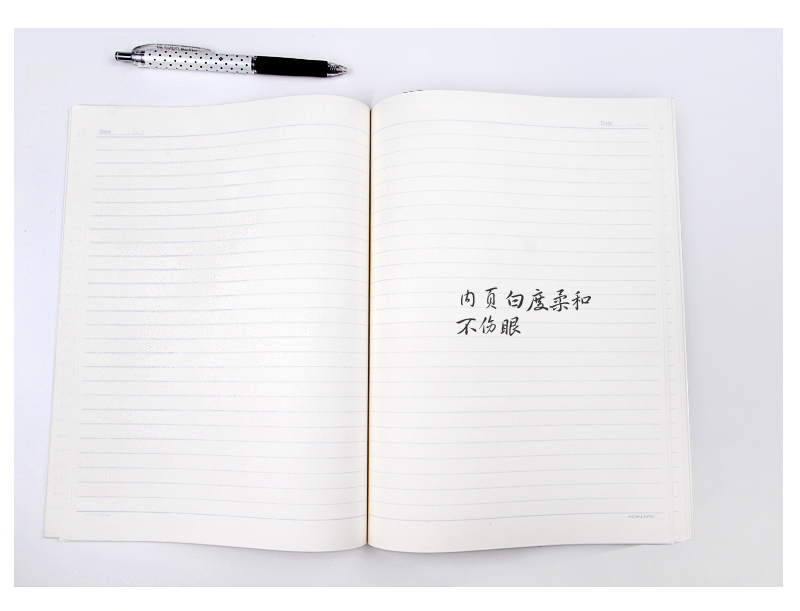 Date
Date
内页白度柔和
不伤眼
KOKUYO